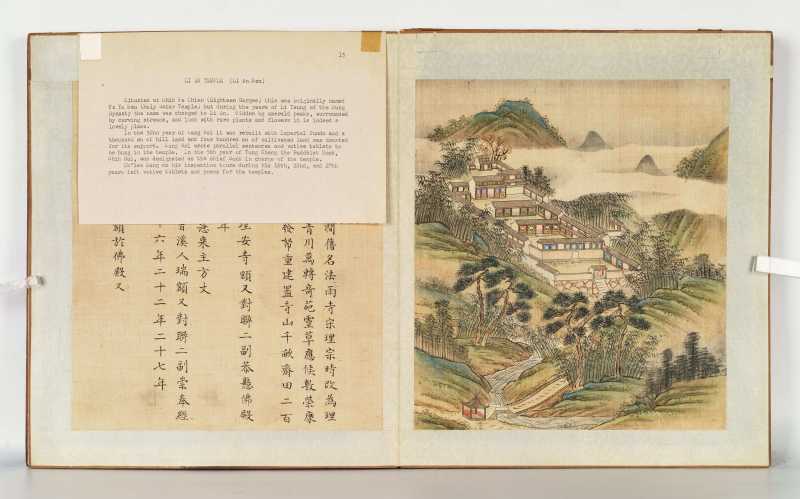 15
LI AN TEMPLE (Li An Ssu)
Situated at Shih Pa Chien (Eighteen Gorges) this was originally named
Fa Yu Ssu (Holy Water Temple) but during the years of Li Tsung of the Sung
Dynasty the name was changed to Li An. Hidden by emerald peaks, surrounded
by curving streams, and lush with rare plants and flowers it is indeed a
lovely place.
In the year of Kang Hsi it was rebuilt with Imperial funds and a
thousand mu of hill land and four hundred mu of cultivated land was donated
for its support. Kang Hsi wrote parallel sentences and votive tablets to
be hung in the temple. In the 5th year of Yung Cheng the Buddhist monk,
was designated as the chief monk in charge of the temple.
Ch'ien Lung on his inspection tours during his 16th, 22nd, and 27th
years left votive tablets and poems for the temples.
澗舊名法雨寺宗理宗時改為理
青川萬轉奇葩靈草應候敷榮康
發帑重建置寺山千畝齋田二百
理安寺額又對聯二副恭懸佛殿
年
來主方丈
溪人瑞額又對聯二副崇奉經
六年二十二年二十七年
額於佛殿又